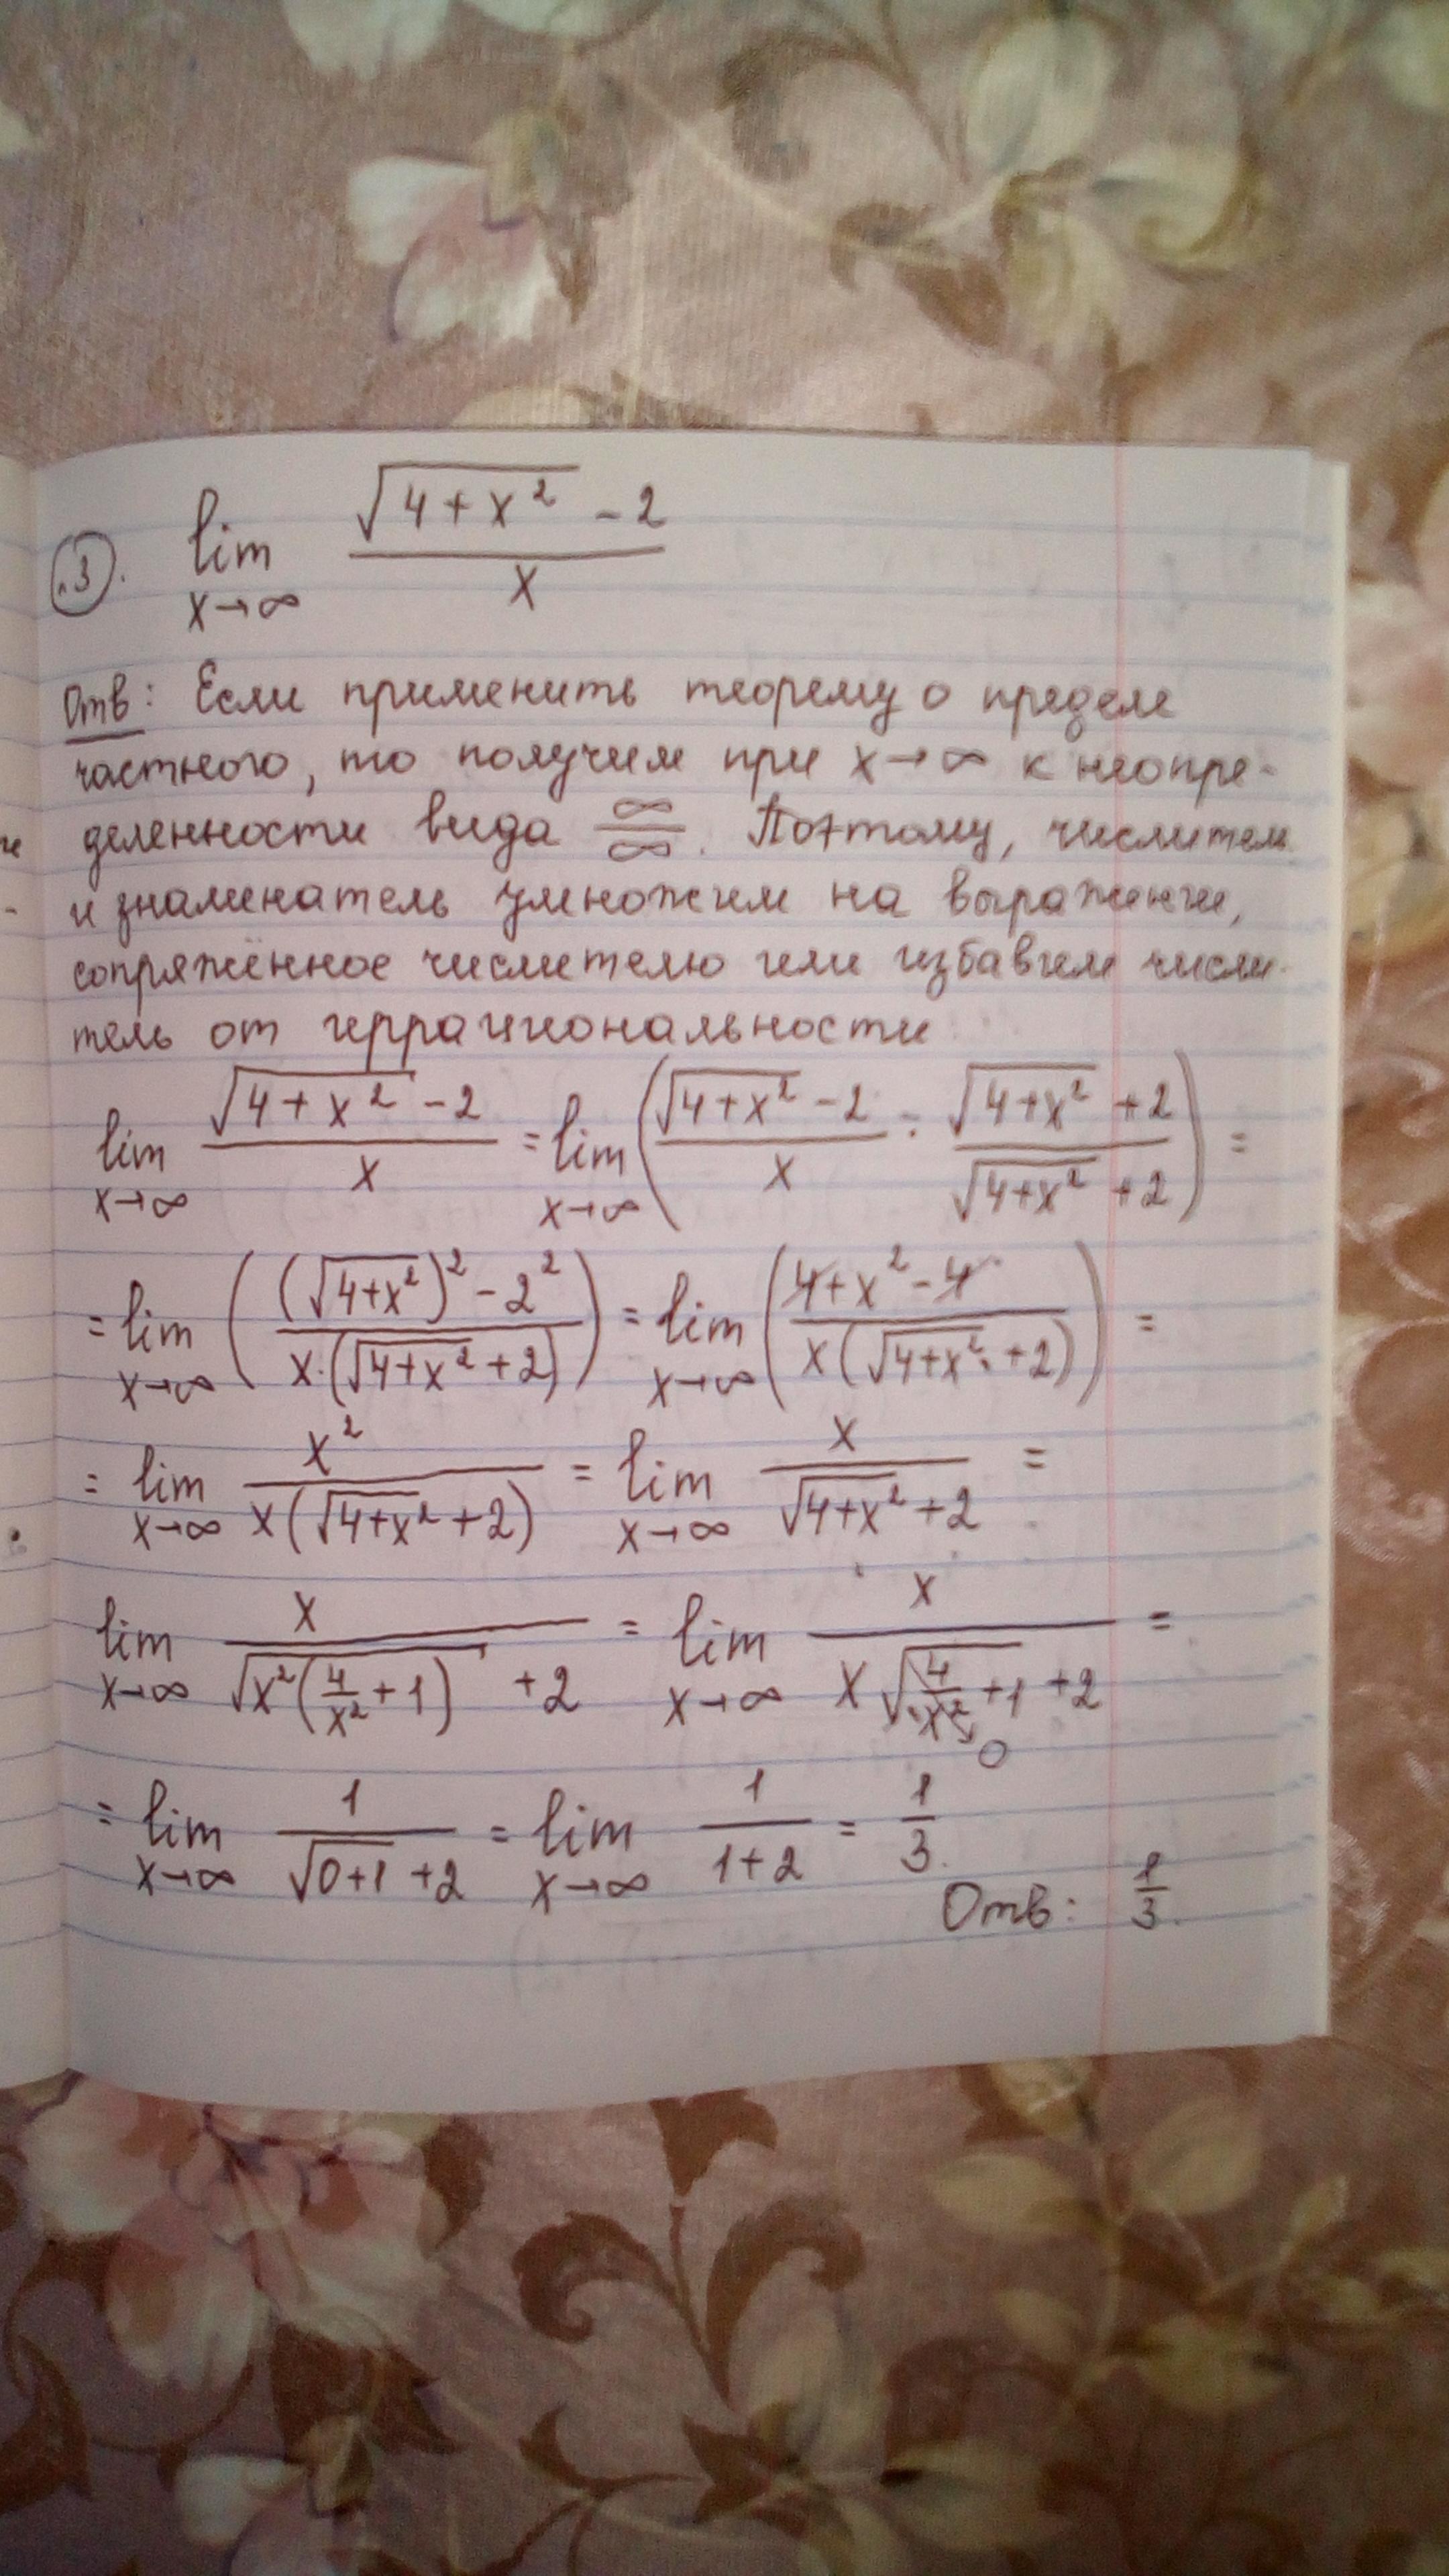 3. lim x→∞ (√(4+x²) - 2)/x
Отв: Если применить теорему о пределе
частного, то получим при x→∞ к неопре-
деленности вида ∞/∞. Поэтому, числител
и знаминатель умножим на выражение,
сопряжённое числителю или избавим числи-
тель от иррациональности
lim x→∞ (√(4+x²) - 2)/x = lim x→∞ ((√(4+x²) - 2)/x · (√(4+x²) + 2)/(√(4+x²) + 2)) =
= lim x→∞ (((√(4+x²))² - 2²)/(x·(√(4+x²) + 2))) = lim x→∞ ((4+x² - 4)/(x(√(4+x²) + 2))) =
= lim x→∞ x²/(x(√(4+x²) + 2)) = lim x→∞ x/(√(4+x²) + 2) =
lim x→∞ x/(√(x²(4/x² + 1)) + 2) = lim x→∞ x/(x√(4/x² + 1) + 2) =
0
= lim x→∞ 1/(√(0+1) + 2) = lim x→∞ 1/(1+2) = 1/3.
Отв: 1/3.